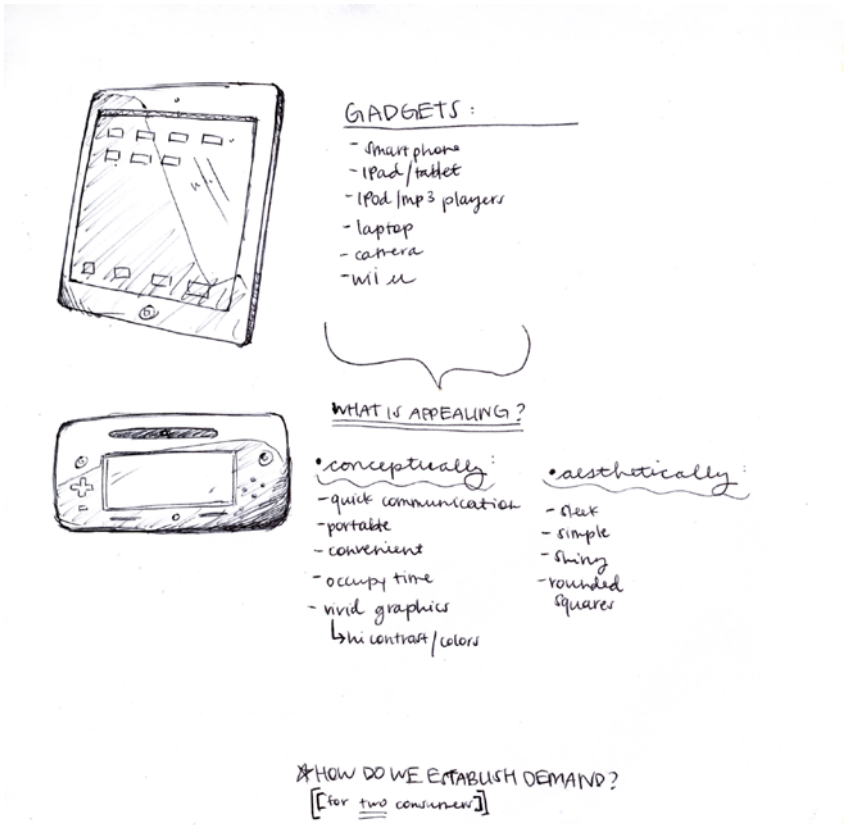 GADGETS:
- smartphone
- IPad/tablet
- IPod/mp3 players
- laptop
- camera
- wii u
WHAT IS APPEALING?
• conceptually:
- quick communication
- portable
- convenient
- occupy time
- vivid graphics
↳ hi contrast/colors
• aesthetically:
- sleek
- simple
- shiny
- rounded
squares
☆ HOW DO WE ESTABLISH DEMAND?
[[for two consumers]]